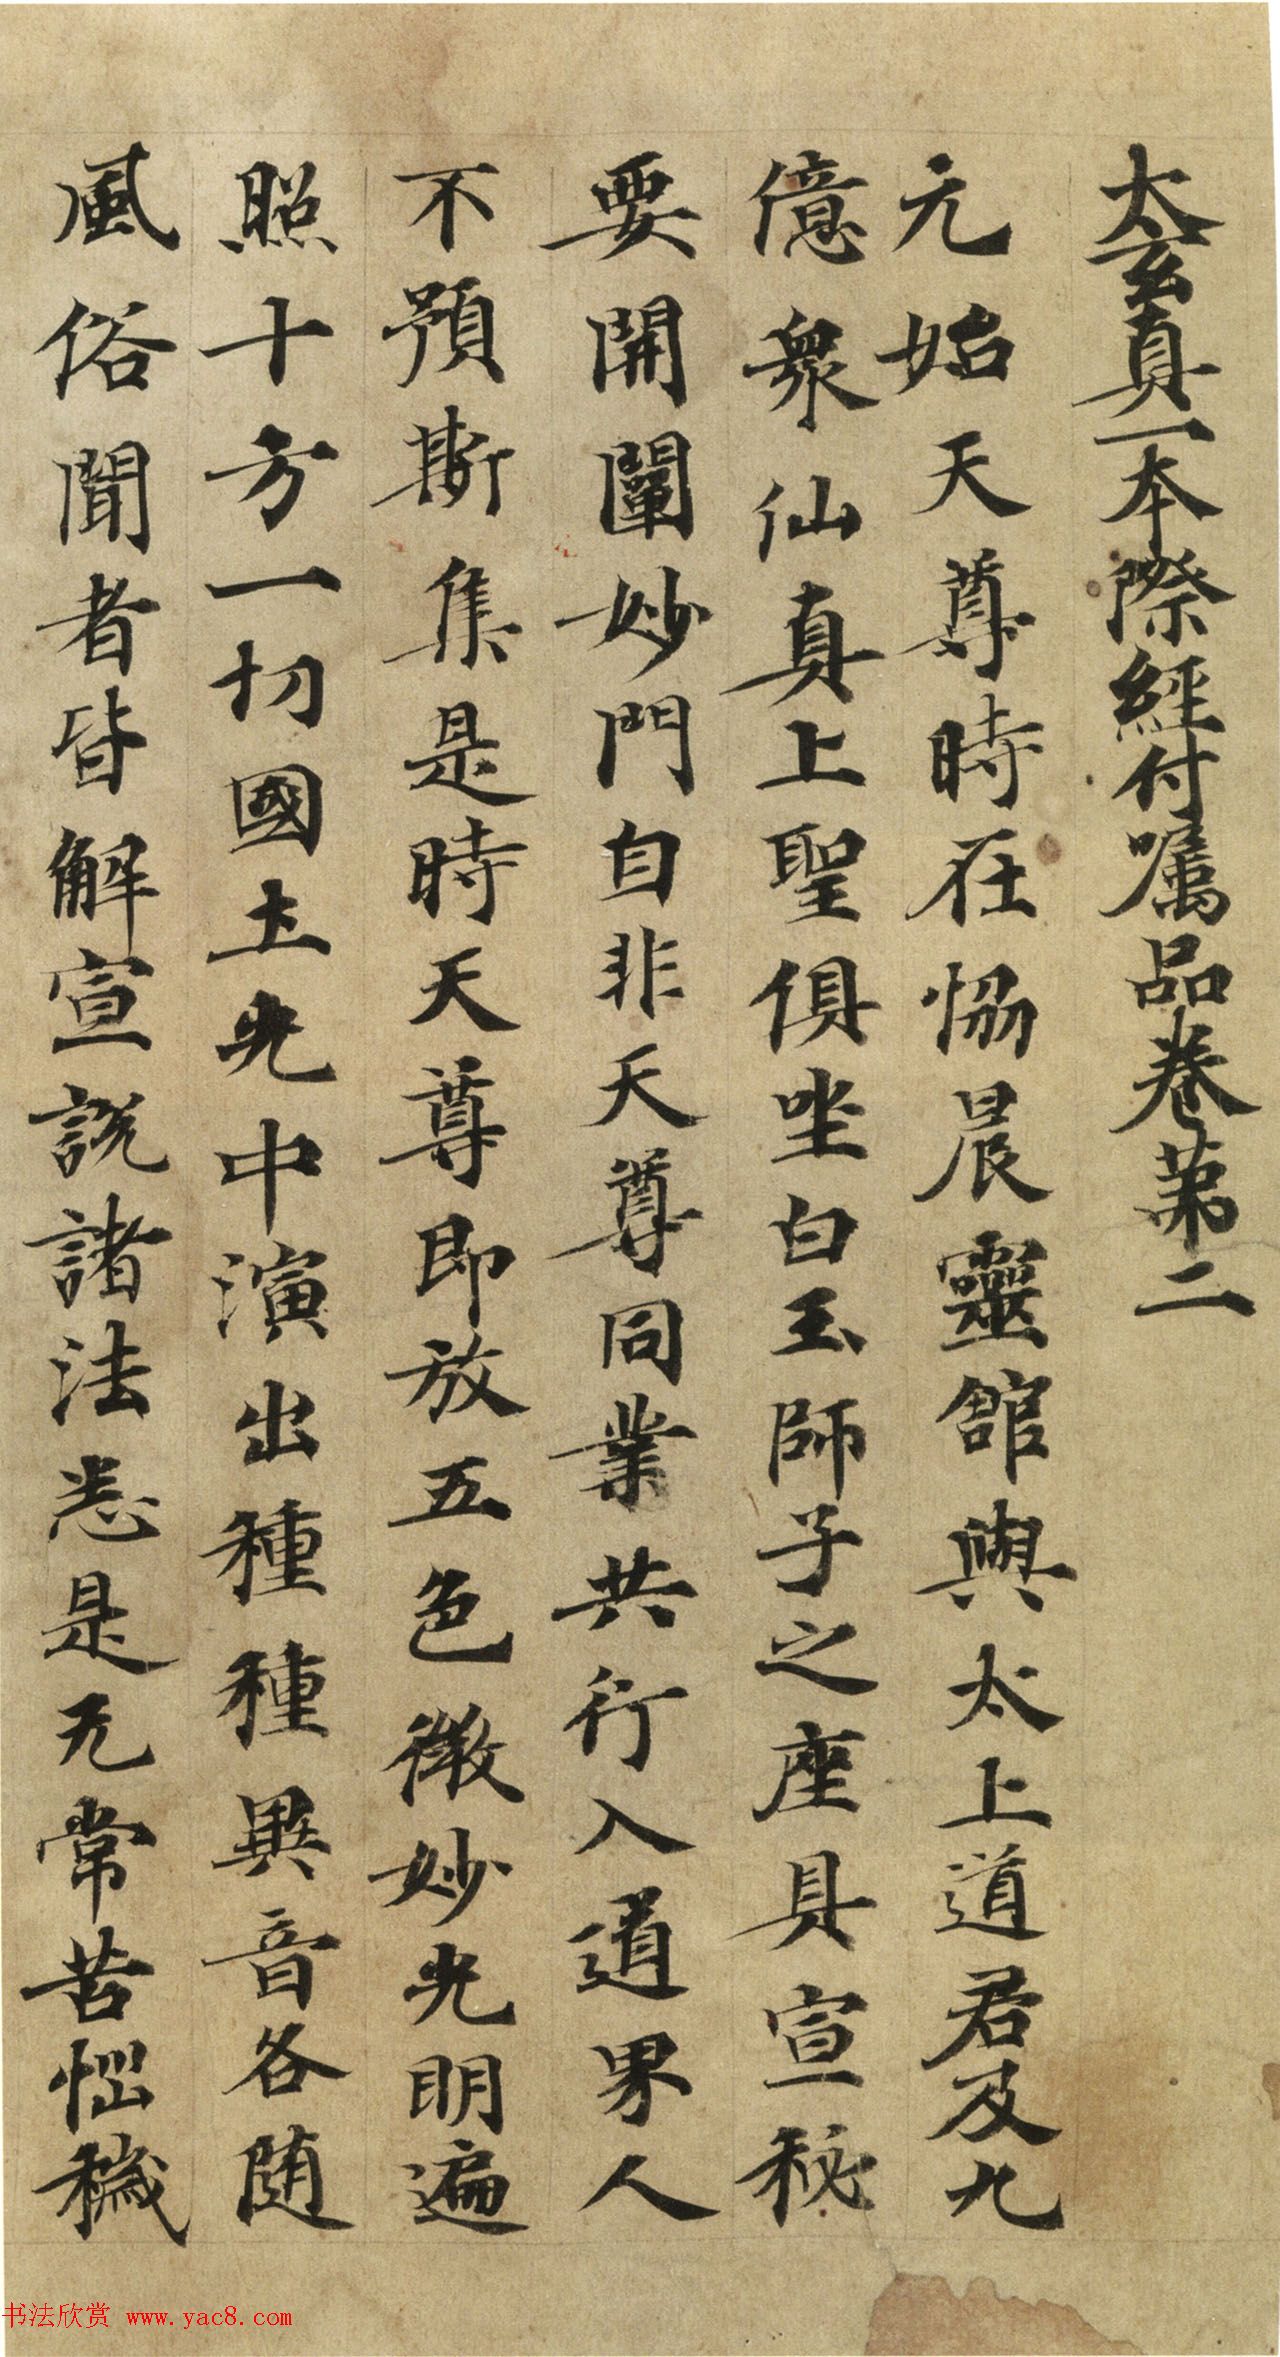 太玄真一本際經付囑品卷第二
元始天尊時在恊晨靈舘與太上道君及九
億衆仙真上聖俱坐白玉師子之座具宣秘
要開闡妙門自非天尊同業共行入道界人
不預斯集是時天尊即放五色微妙光明遍
照十方一切國土光中演出種種異音各随
風俗聞者皆解宣説諸法悉是无常苦惱穢
书法欣赏 www.yac8.com